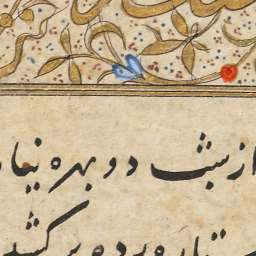 از شب دو بهره نیا
ستاره پرده بر کشید